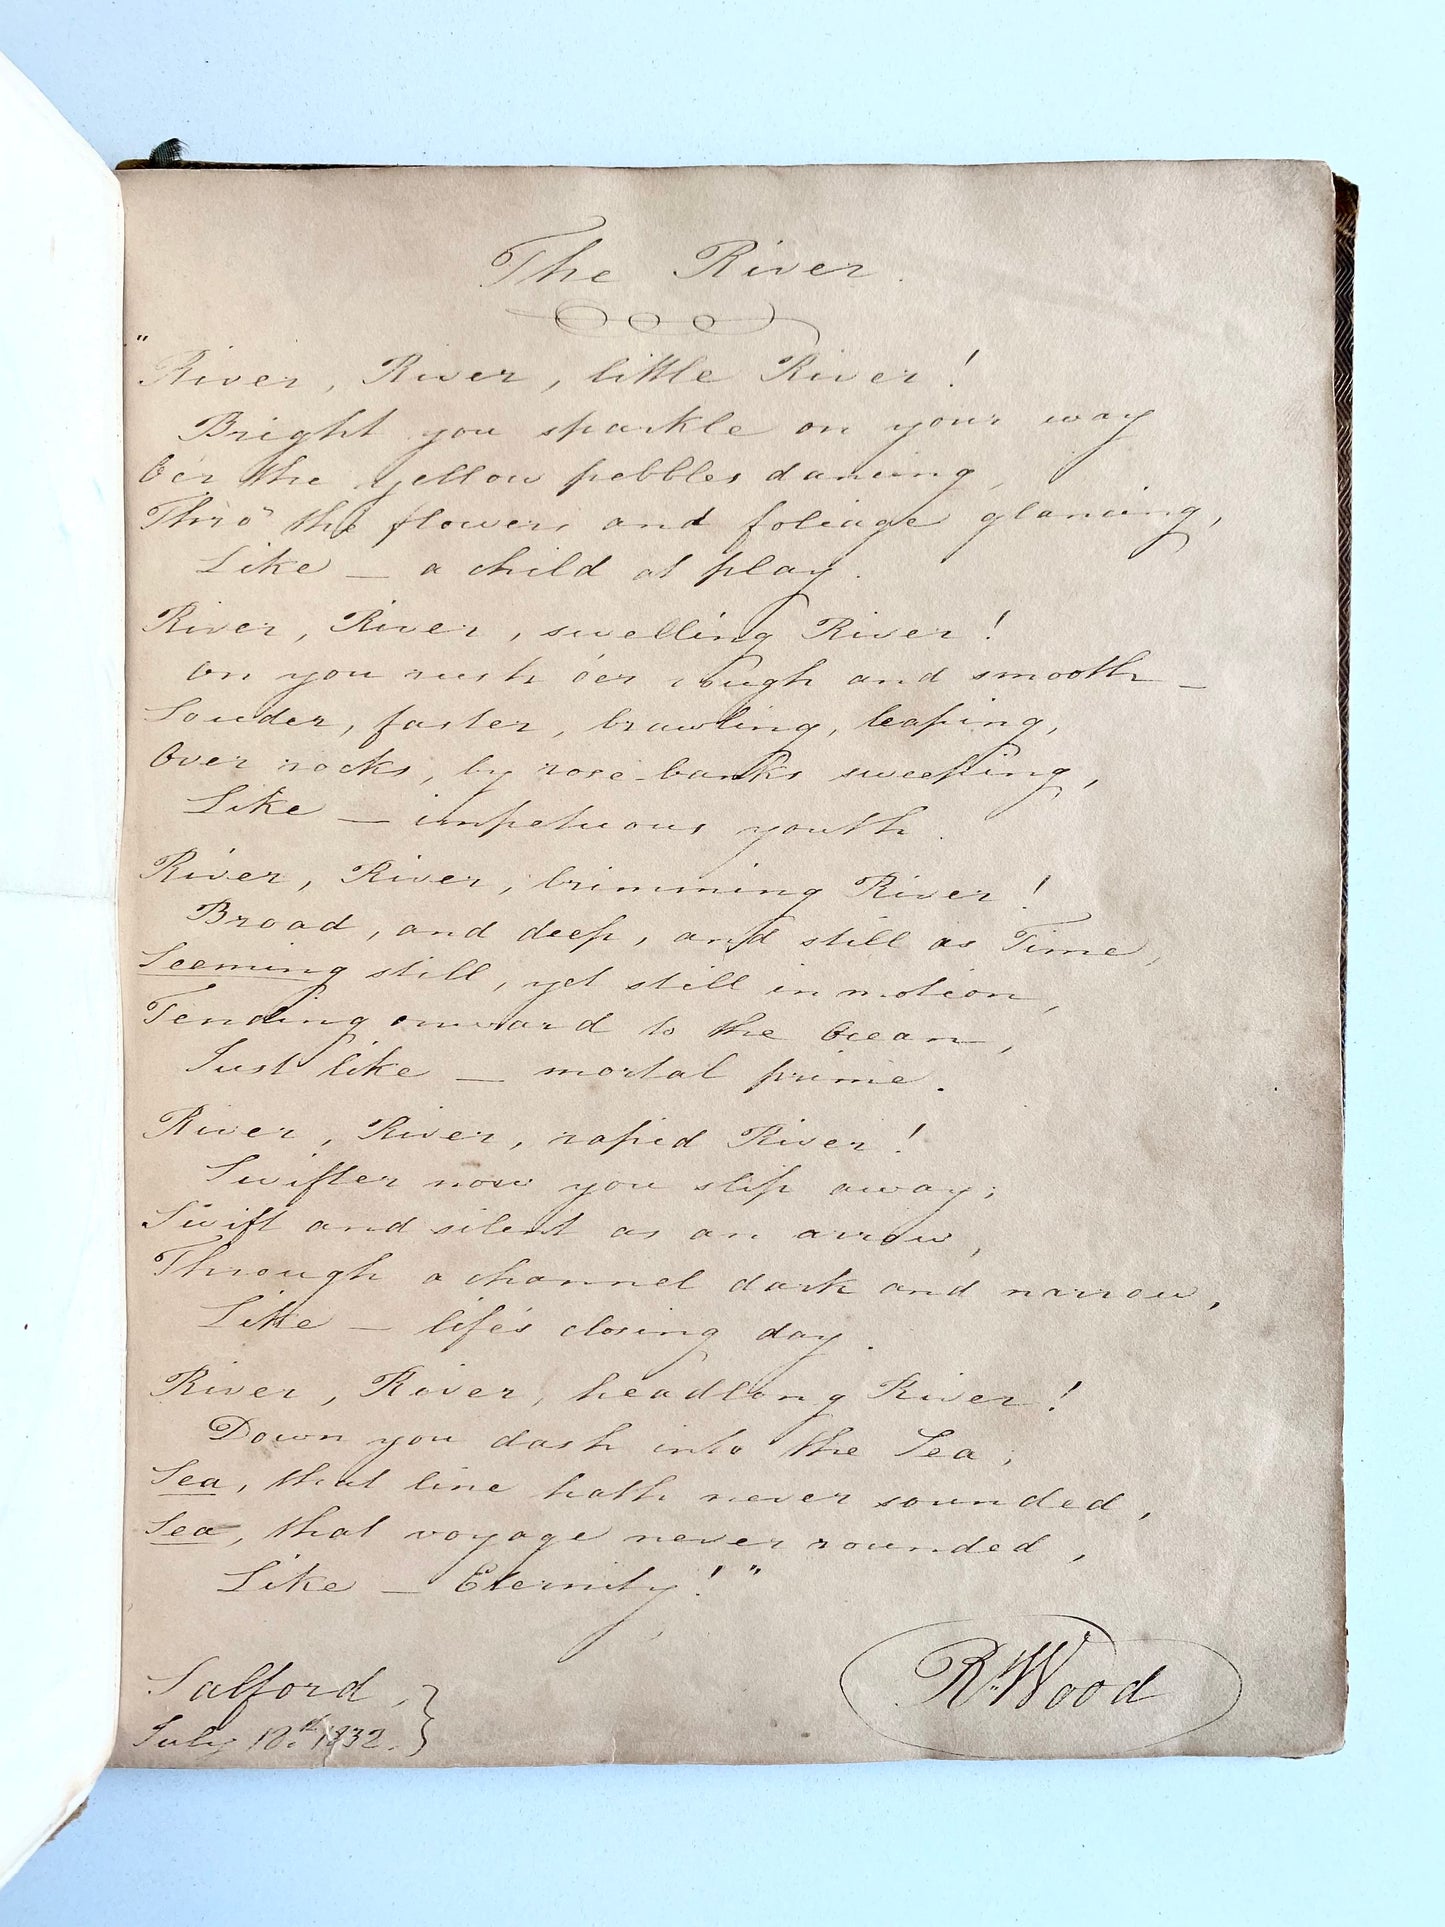 The River.
"River, River, little River!
Bright you sparkle on your way
O'er the yellow pebbles dancing,
Thro' the flowers and foliage glancing,
Like — a child at play.
River, River, swelling River!
On you rush o'er rough and smooth —
Louder, faster, brawling, leaping,
Over rocks, by rose-banks sweeping,
Like — impetuous youth.
River, River, brimming River!
Broad, and deep, and still as Time,
Seeming still, yet still in motion,
Tending onward to the Ocean,
Just like — mortal prime.
River, River, rapid River!
Swifter now you slip away;
Swift and silent as an arrow,
Through a channel dark and narrow,
Like — life's closing day.
River, River, headlong River!
Down you dash into the Sea;
Sea, that line hath never sounded,
Sea, that voyage never rounded,
Like — Eternity!"
R. Wood
Salford,
July 10th, 1832.